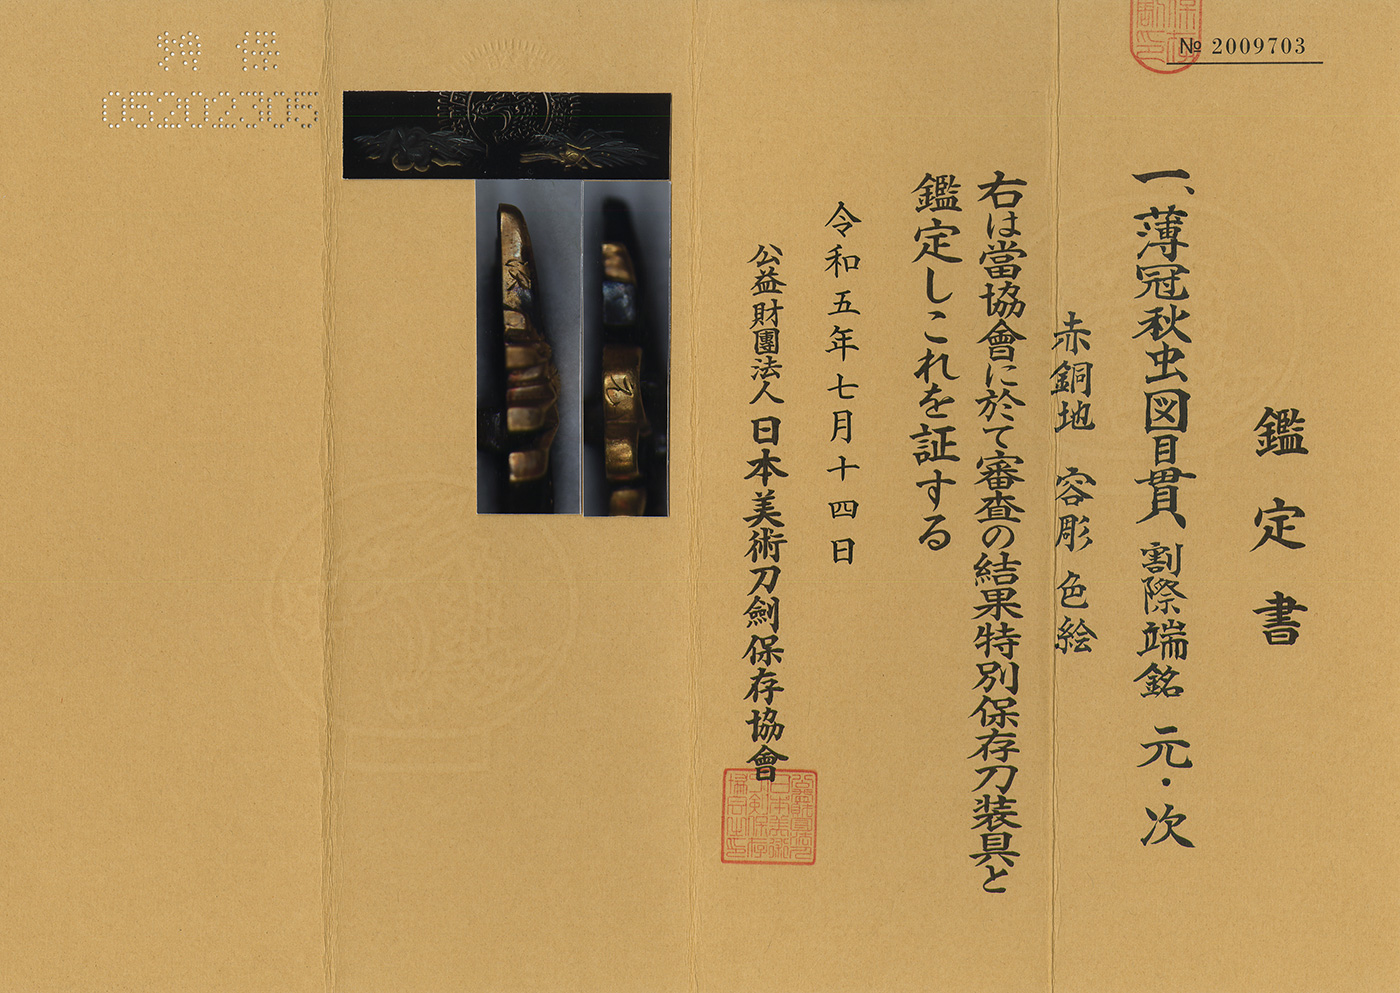 № 2009703
鑑定書
一、薄冠秋虫図目貫 割際端銘 元・次
赤銅地 容彫 色絵
右は當協會に於て審査の結果特別保存刀装具と
鑑定しこれを証する
令和五年七月十四日
公益財團法人 日本美術刀劍保存協會
05202305